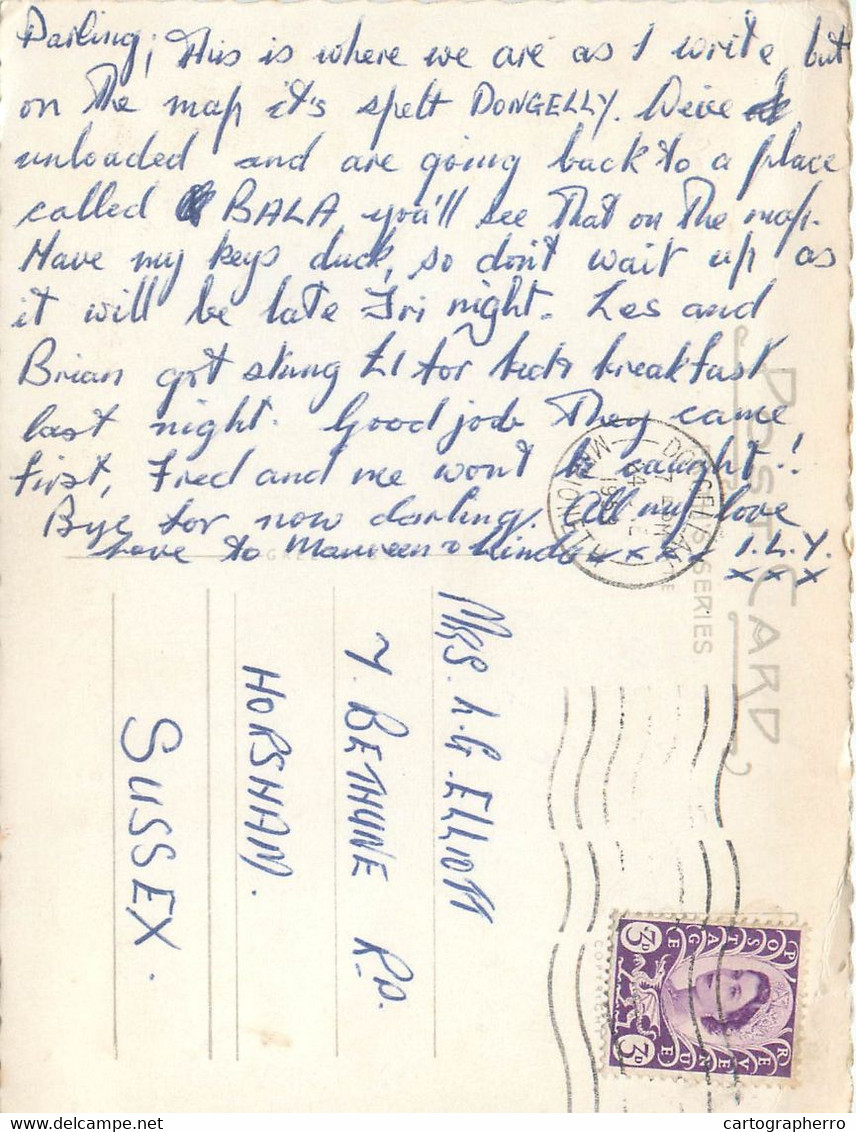 Darling, This is where we are as I write, but
on the map it's spelt DONGELLY. We've
unloaded and are going back to a place
called BALA you'll see that on the map.
Have my keys duck, so don't wait up as
it will be late Fri night. Les and
Brian got stung £1 for bed & breakfast
last night. Good job they came
first, Fred and me won't be caught!!
Bye for now darling. All my love
Love to Maureen & Linda x x x x I.L.Y.
x x x
POST CARD
SERIES
DOLGELLAU
MERIONETH
MRS. L.G. ELLIOTT
7. BETHUNE RD.
HORSHAM.
SUSSEX.
POSTAGE
REVENUE
3D
3D
cartographerro